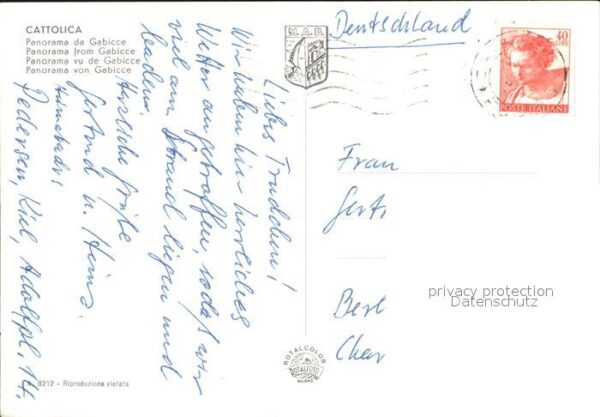 CATTOLICA
Panorama da Gabicce
Panorama from Gabicce
Panorama vu de Gabicce
Panorama von Gabicce
M.A.B.
Deutschland
40
LIRE
POSTE ITALIANE
Liebes Trudchen!
Wir haben hier herrliches
Wetter angetroffen, sodaß wir
viel am Strand liegen und
baden.
Herzliche Grüße
Gertrud u. Heinz
Heimatadr.:
Pedersen, Kiel, Adolfpl. 14.
Frau
Gert
Berl
Char
privacy protection
Datenschutz
ROTALCOLOR
ROTALFOTO
MILANO
8212 - Riproduzione vietata